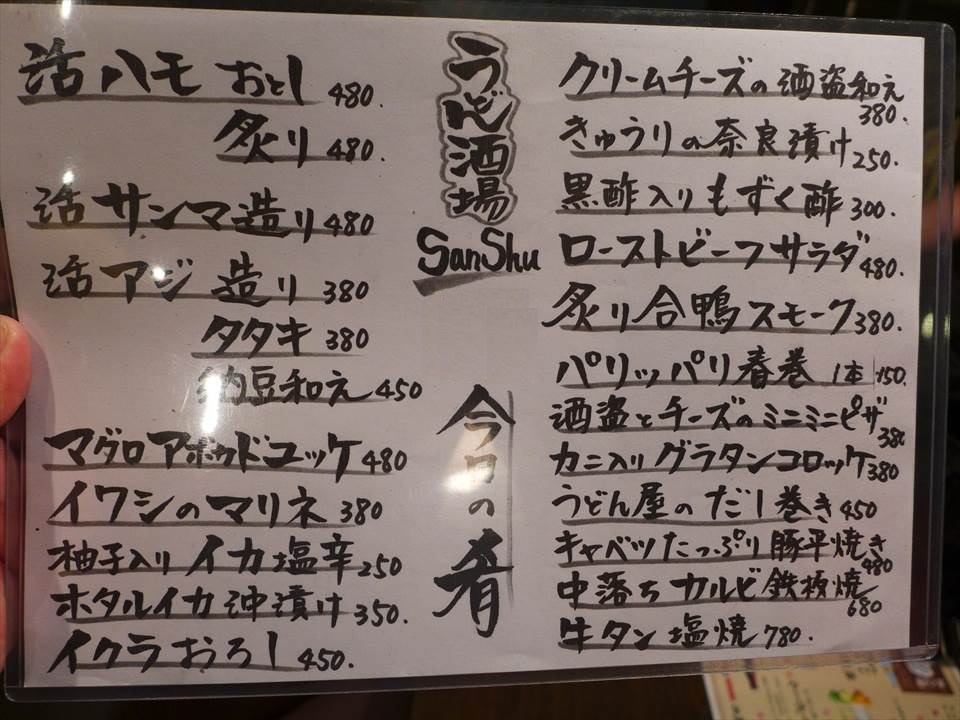 うどん酒場
SanShu
今日の肴
活ハモ おとし 480.
炙り 480.
活サンマ造り 480
活アジ 造り 380
タタキ 380
納豆和え 450
マグロアボカドユッケ 480
イワシのマリネ 380
柚子入りイカ塩辛 250
ホタルイカ沖漬け 350.
イクラおろし 450.
クリームチーズの酒盗和え 380.
きゅうりの奈良漬け 250.
黒酢入りもずく酢 300.
ローストビーフサラダ 480.
炙り合鴨スモーク 380.
パリッパリ春巻 1本 150.
酒盗とチーズのミニミニピザ 380
カニ入りグラタンコロッケ 380
うどん屋のだし巻き 450
キャベツたっぷり豚平焼き 480
中落ちカルビ鉄板焼 680
牛タン塩焼 780.